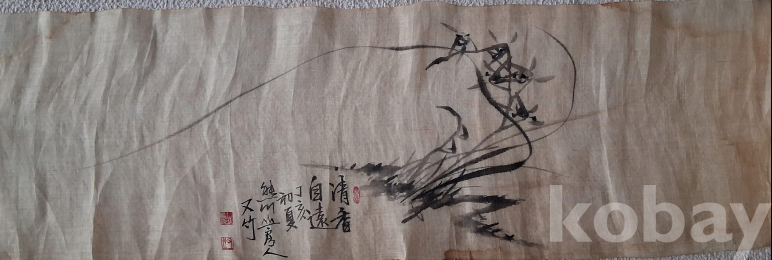 清香
自遠
丁亥
初夏
人
又竹
kobay